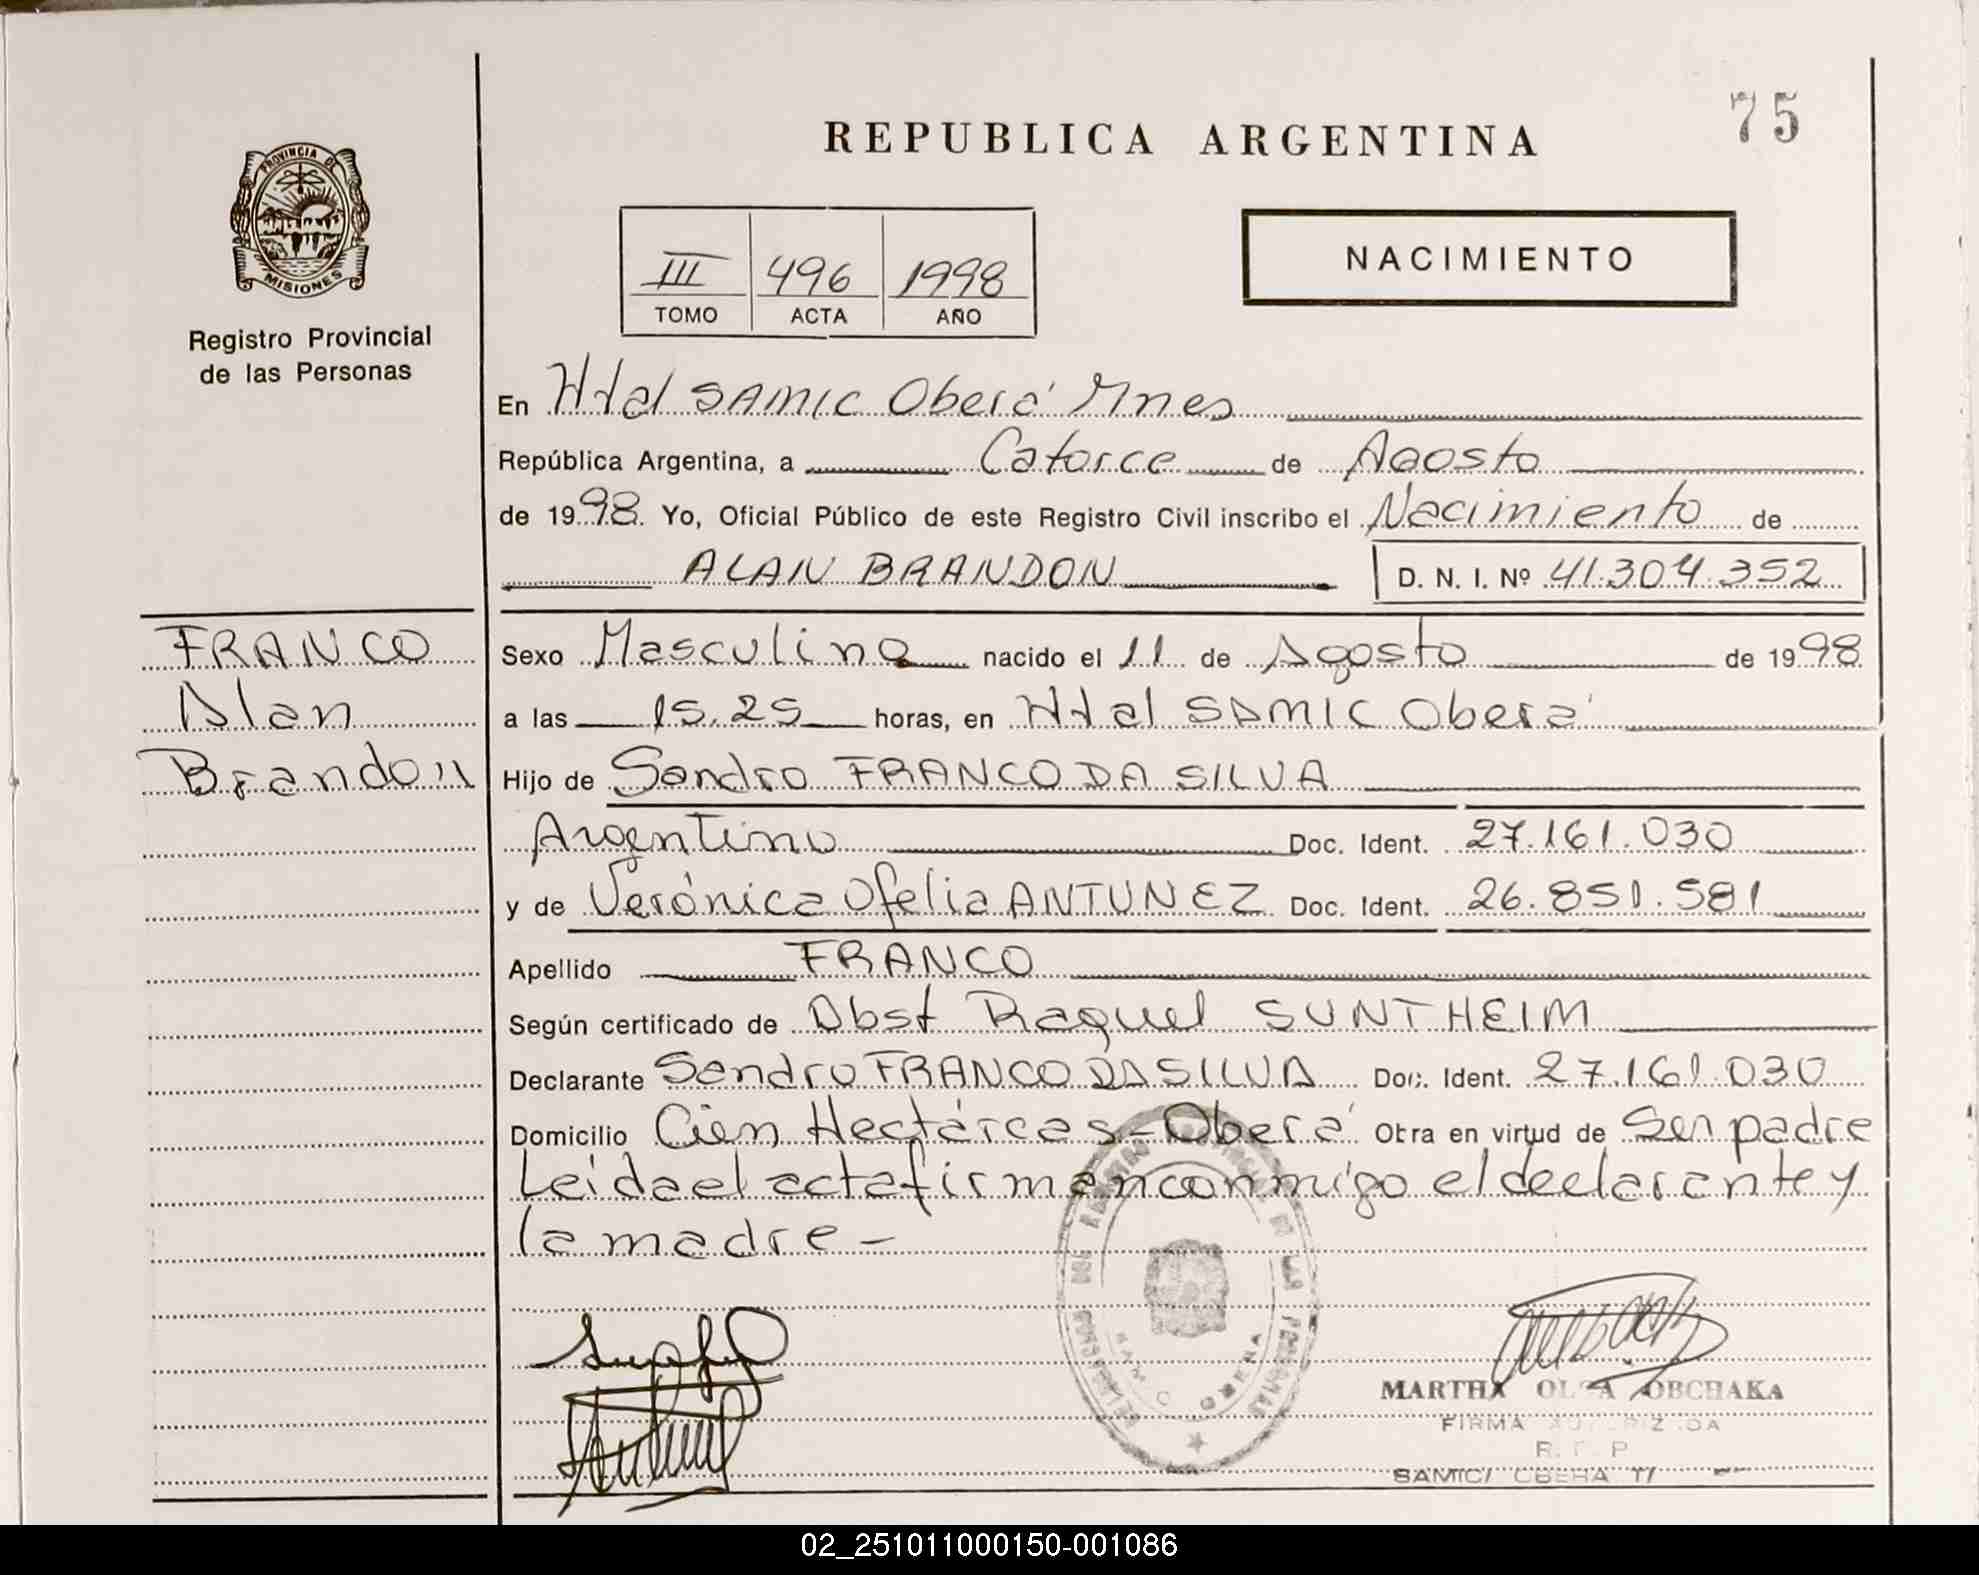 75
REPUBLICA ARGENTINA
PROVINCIA DE
MISIONES
Registro Provincial
de las Personas
III 496 1998
TOMO ACTA AÑO
NACIMIENTO
En Htal SAMIC Oberá Mnes
República Argentina, a Catorce de Agosto
de 1998. Yo, Oficial Público de este Registro Civil inscribo el Nacimiento de
ALAN BRANDON D. N. I. Nº 41.304.352
FRANCO
Alan
Brandon
Sexo Masculino nacido el 11 de Agosto de 1998
a las 15.25 horas, en Htal SAMIC Oberá
Hijo de Sandro FRANCO DA SILVA
Argentino Doc. Ident. 27.161.030
y de Verónica Ofelia ANTUNEZ Doc. Ident. 26.851.581
Apellido FRANCO
Según certificado de Obst Raquel SUNTHEIM
Declarante Sandro FRANCO DA SILVA Doc. Ident. 27.161.030
Domicilio Cien Hectáreas - Oberá Obra en virtud de Ser padre
Leída el acta firman conmigo el declarante y
la madre -
MARTHA OLGA OBCHAKA
FIRMA AUTORIZADA
R. P. P
SAMIC OBERA
02_251011000150-001086